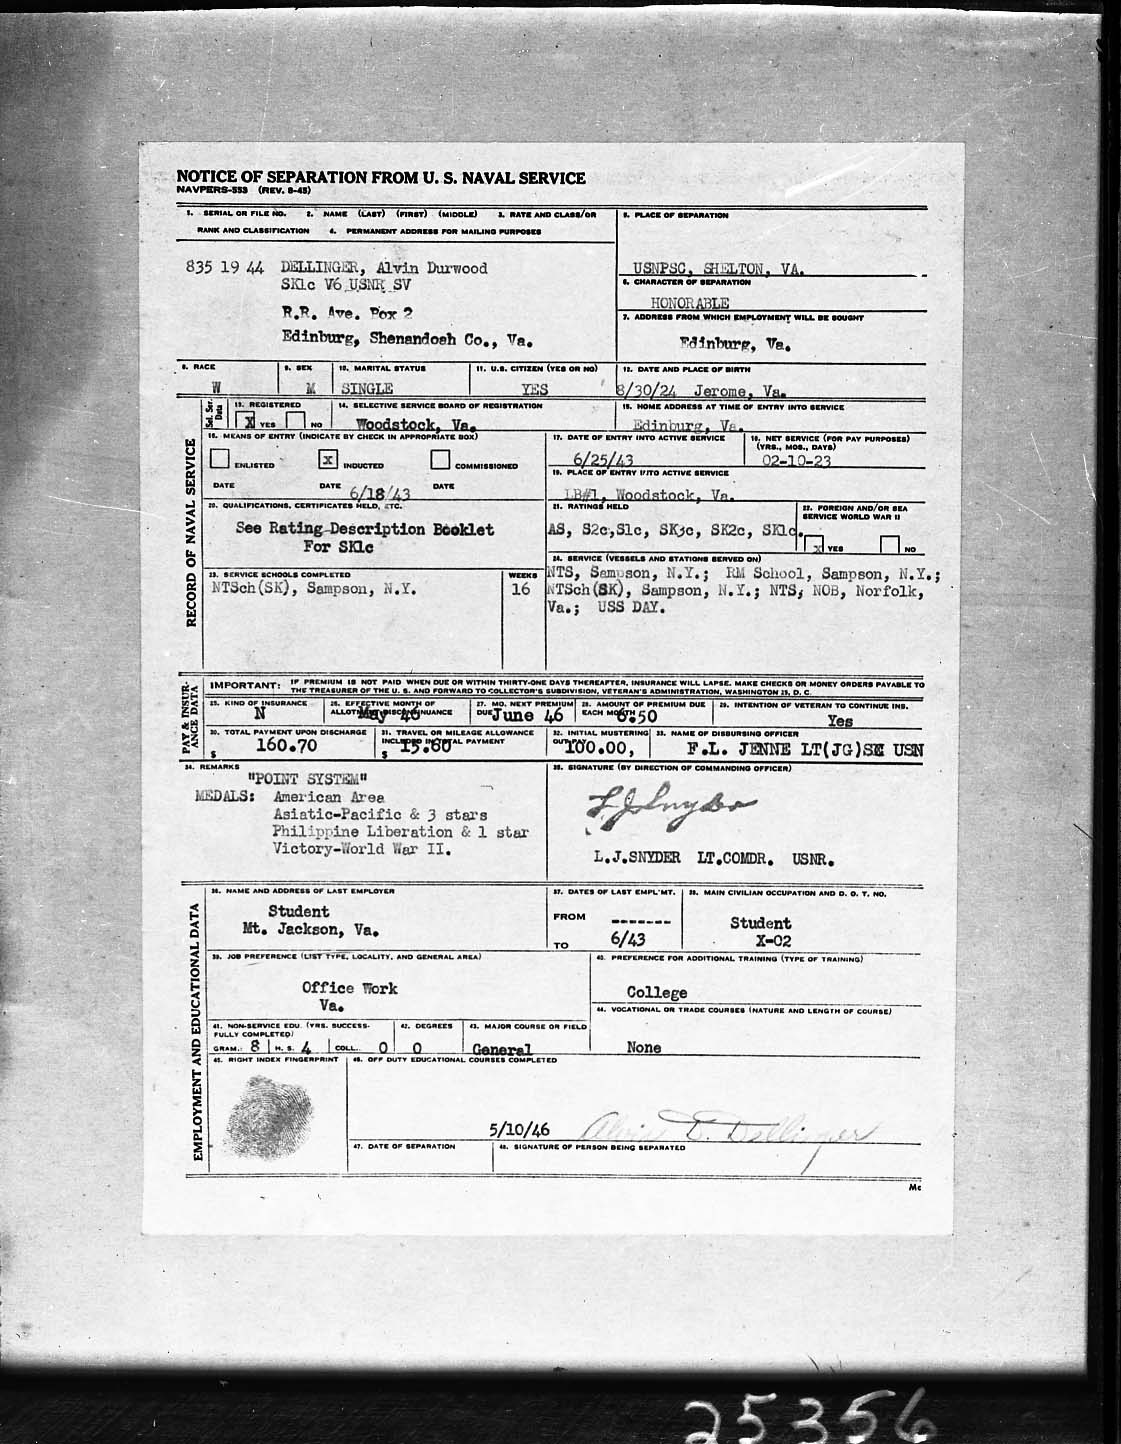 NOTICE OF SEPARATION FROM U. S. NAVAL SERVICE
NAVPERS-553 (REV. 8-45)
1. SERIAL OR FILE NO. 2. NAME (LAST) (FIRST) (MIDDLE) 3. RATE AND CLASS/OR
RANK AND CLASSIFICATION 4. PERMANENT ADDRESS FOR MAILING PURPOSES
5. PLACE OF SEPARATION
835 19 44 DELLINGER, Alvin Durwood
SK1c V6 USNR SV
R.R. Ave. Box 2
Edinburg, Shenandoah Co., Va.
USNPSC, SHELTON, VA.
6. CHARACTER OF SEPARATION
HONORABLE
7. ADDRESS FROM WHICH EMPLOYMENT WILL BE SOUGHT
Edinburg, Va.
8. RACE 9. SEX 10. MARITAL STATUS 11. U.S. CITIZEN (YES OR NO) 12. DATE AND PLACE OF BIRTH
W M SINGLE YES 8/30/24 Jerome, Va.
RECORD OF NAVAL SERVICE
Sel. Ser. Data
13. REGISTERED 14. SELECTIVE SERVICE BOARD OF REGISTRATION 15. HOME ADDRESS AT TIME OF ENTRY INTO SERVICE
X YES NO Woodstock, Va. Edinburg, Va.
16. MEANS OF ENTRY (INDICATE BY CHECK IN APPROPRIATE BOX) 17. DATE OF ENTRY INTO ACTIVE SERVICE 18. NET SERVICE (FOR PAY PURPOSES)
(YRS., MOS., DAYS)
ENLISTED X INDUCTED COMMISSIONED 6/25/43 02-10-23
19. PLACE OF ENTRY INTO ACTIVE SERVICE
DATE DATE 6/18/43 DATE
LB#1, Woodstock, Va.
20. QUALIFICATIONS, CERTIFICATES HELD, ETC. 21. RATINGS HELD 22. FOREIGN AND/OR SEA
SERVICE WORLD WAR II
See Rating Description Booklet
For SK1c
AS, S2c,S1c, SK3c, SK2c, SK1c.
X YES NO
23. SERVICE SCHOOLS COMPLETED WEEKS 24. SERVICE (VESSELS AND STATIONS SERVED ON)
NTSch(SK), Sampson, N.Y. 16
NTS, Sampson, N.Y.; RM School, Sampson, N.Y.;
NTSch(SK), Sampson, N.Y.; NTS, NOB, Norfolk,
Va.; USS DAY.
PAY & INSURANCE DATA
IMPORTANT: IF PREMIUM IS NOT PAID WHEN DUE OR WITHIN THIRTY-ONE DAYS THEREAFTER, INSURANCE WILL LAPSE. MAKE CHECKS OR MONEY ORDERS PAYABLE TO
THE TREASURER OF THE U. S. AND FORWARD TO COLLECTOR'S SUBDIVISION, VETERAN'S ADMINISTRATION, WASHINGTON 25, D. C.
25. KIND OF INSURANCE 26. EFFECTIVE MONTH OF ALLOTMENT DISCONTINUANCE 27. MO. NEXT PREMIUM DUE 28. AMOUNT OF PREMIUM DUE EACH MONTH 29. INTENTION OF VETERAN TO CONTINUE INS.
N May 46 June 46 6.50 Yes
30. TOTAL PAYMENT UPON DISCHARGE 31. TRAVEL OR MILEAGE ALLOWANCE INCLUDED IN TOTAL PAYMENT 32. INITIAL MUSTERING OUT PAY 33. NAME OF DISBURSING OFFICER
$ 160.70 $ 15.60 100.00, F.L. JENNE LT(JG)SC USN
34. REMARKS 35. SIGNATURE (BY DIRECTION OF COMMANDING OFFICER)
"POINT SYSTEM"
MEDALS: American Area
Asiatic-Pacific & 3 stars
Philippine Liberation & 1 star
Victory-World War II.
L J Snyder
L.J.SNYDER LT.COMDR. USNR.
EMPLOYMENT AND EDUCATIONAL DATA
36. NAME AND ADDRESS OF LAST EMPLOYER 37. DATES OF LAST EMPL'MT. 38. MAIN CIVILIAN OCCUPATION AND D. O. T. NO.
Student
Mt. Jackson, Va.
FROM -------
TO 6/43
Student
X-02
39. JOB PREFERENCE (LIST TYPE, LOCALITY, AND GENERAL AREA) 40. PREFERENCE FOR ADDITIONAL TRAINING (TYPE OF TRAINING)
Office Work
Va.
College
44. VOCATIONAL OR TRADE COURSES (NATURE AND LENGTH OF COURSE)
41. NON-SERVICE EDU. (YRS. SUCCESS-
FULLY COMPLETED) 42. DEGREES 43. MAJOR COURSE OR FIELD
GRAM.: 8 H. S. 4 COLL. 0 0 General None
45. RIGHT INDEX FINGERPRINT 46. OFF DUTY EDUCATIONAL COURSES COMPLETED
5/10/46 Alvin D. Dellinger
47. DATE OF SEPARATION 48. SIGNATURE OF PERSON BEING SEPARATED
Mc
25356